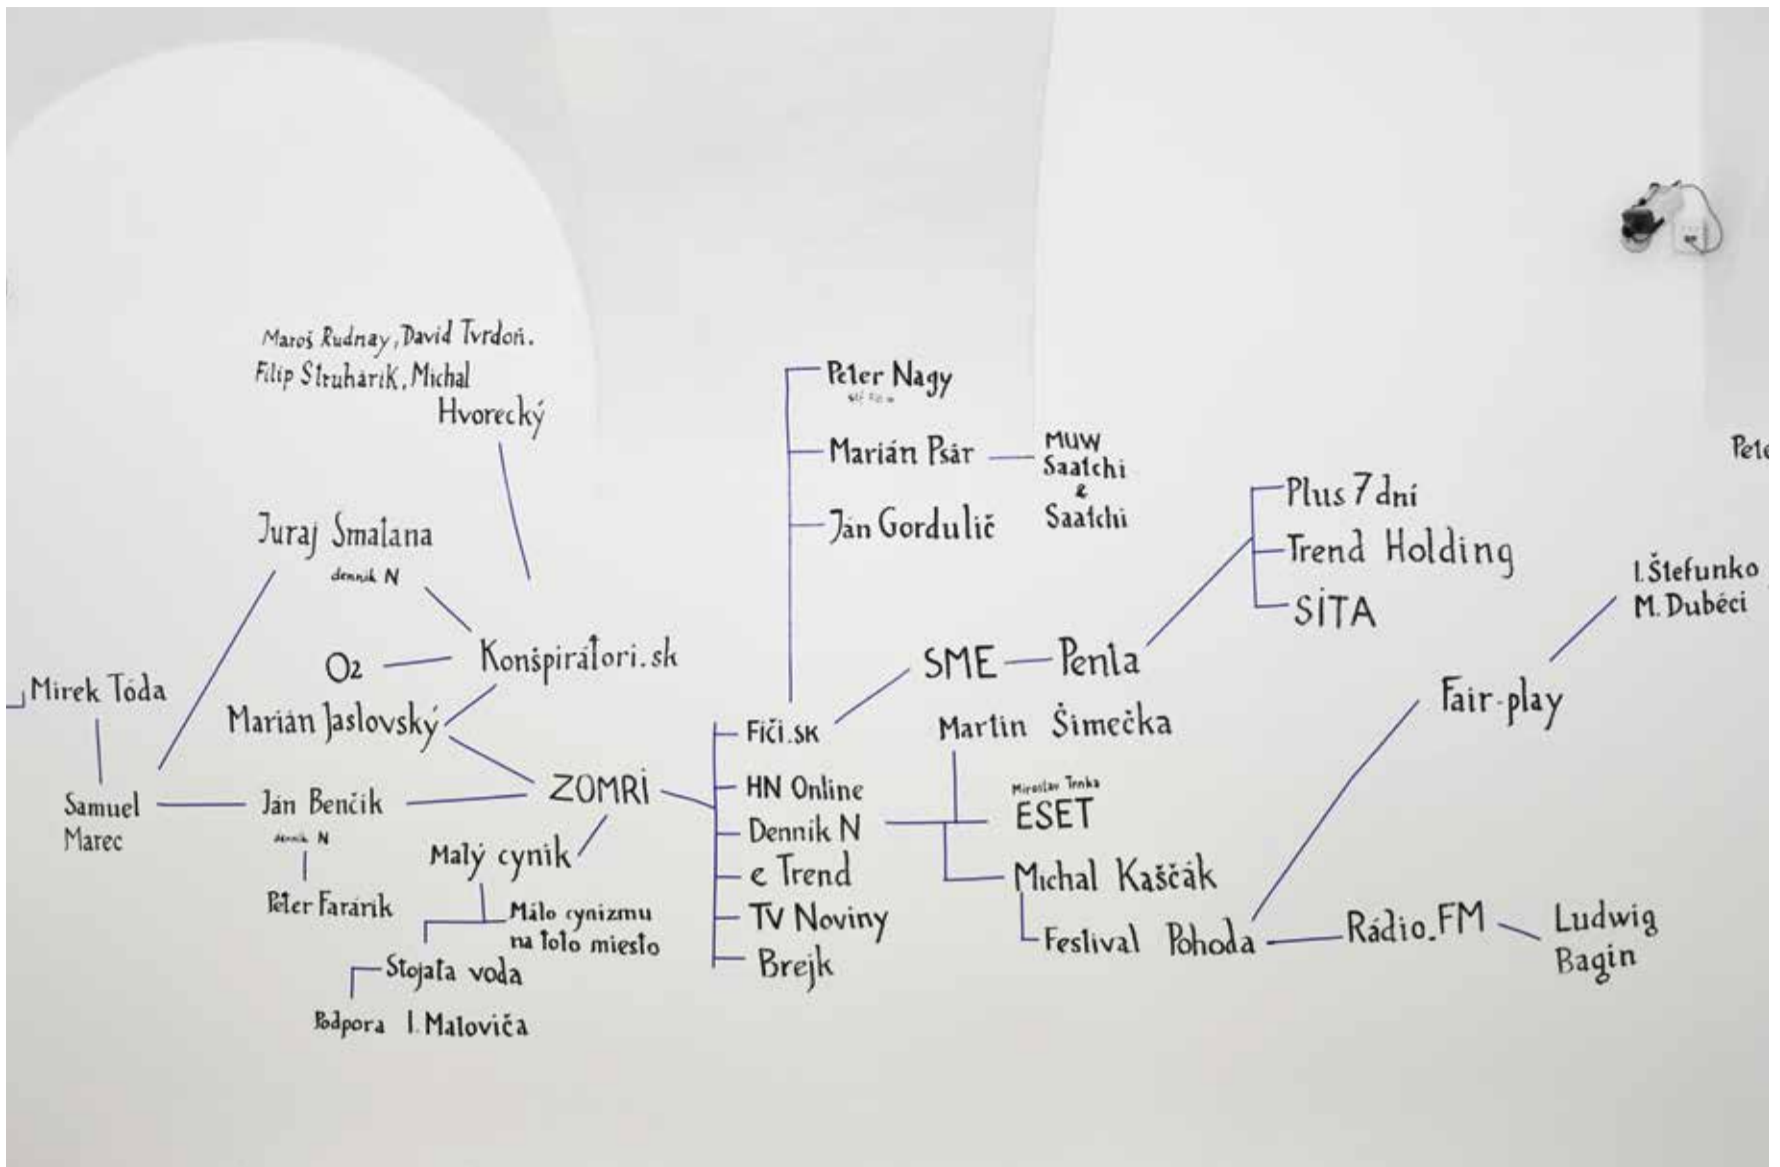 Maroš Rudnay, David Tvrdoň.
Filip Struhárik, Michal
Hvorecký
Juraj Smatana
denník N
O2
Konšpirátori.sk
Mirek Tóda
Marián Jaslovský
Samuel
Marec
Ján Benčík
denník N
Peter Farárik
ZOMRI
Malý cynik
Málo cynizmu
na toto miesto
Stojata voda
Podpora I. Maloviča
Peter Nagy
Marián Psár
MUW
Saatchi
&
Saatchi
Ján Gordulič
Fiči.sk
HN Online
Denník N
e Trend
TV Noviny
Brejk
SME
Penta
Plus 7 dní
Trend Holding
SITA
Martin Šimečka
Miroslav Trnka
ESET
Michal Kaščák
Festival Pohoda
Rádio_FM
Ludwig
Bagin
Fair-play
I. Štefunko
M. Dubéci
Pete